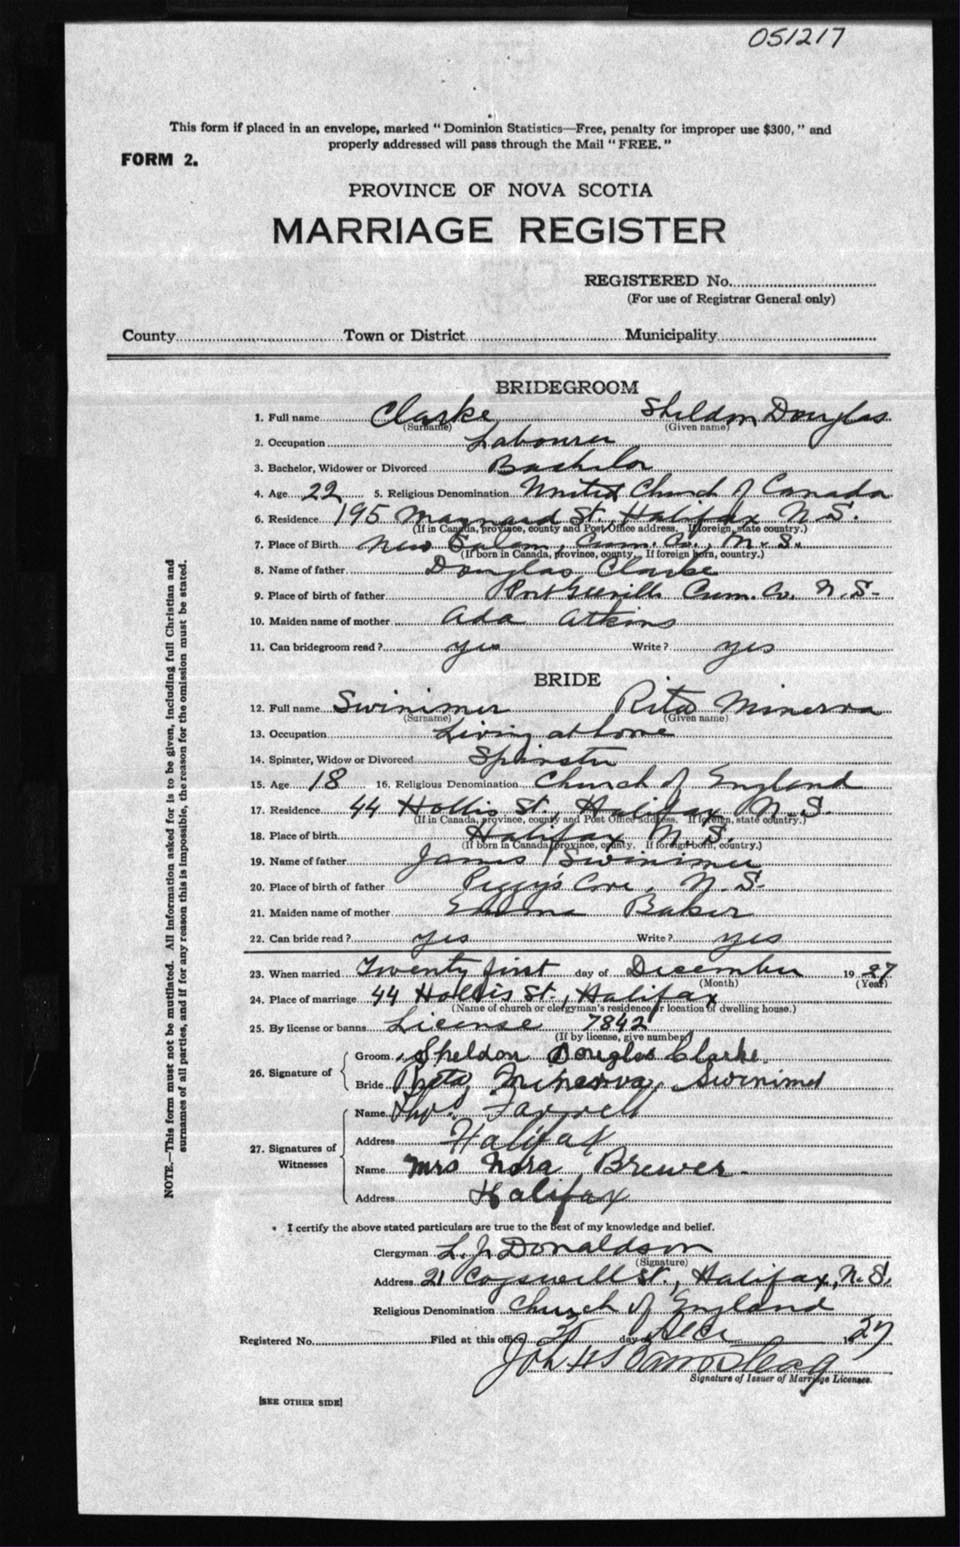 051217
This form if placed in an envelope, marked "Dominion Statistics—Free, penalty for improper use $300," and
properly addressed will pass through the Mail "FREE."
FORM 2.
PROVINCE OF NOVA SCOTIA
MARRIAGE REGISTER
REGISTERED No.
(For use of Registrar General only)
County Town or District Municipality
BRIDEGROOM
1. Full name Clarke Sheldon Douglas
(Surname) (Given name)
2. Occupation Labourer
3. Bachelor, Widower or Divorced Bachelor
4. Age 22 5. Religious Denomination United Church of Canada
6. Residence 195 Maynard St. Halifax N.S.
(If in Canada, province, county and Post Office address. If foreign, state country.)
7. Place of Birth New Salem, Cum. Co., N.S.
(If born in Canada, province, county. If foreign born, country.)
8. Name of father Douglas Clarke
9. Place of birth of father Port Greville Cum. Co. N.S.
10. Maiden name of mother Ada Atkins
11. Can bridegroom read? yes Write? yes
BRIDE
12. Full name Swinimer Rita Minerva
(Surname) (Given name)
13. Occupation Living at home
14. Spinster, Widow or Divorced Spinster
15. Age 18 16. Religious Denomination Church of England
17. Residence 44 Hollis St. Halifax N.S.
(If in Canada, province, county and Post Office address. If foreign, state country.)
18. Place of birth Halifax N.S.
(If born in Canada, province, county. If foreign born, country.)
19. Name of father James Swinimer
20. Place of birth of father Peggy's Cove, N.S.
21. Maiden name of mother Emma Baker
22. Can bride read? yes Write? yes
23. When married Twenty first day of December 1927
(Month) (Year)
24. Place of marriage 44 Hollis St., Halifax
(Name of church or clergyman's residence or location of dwelling house.)
25. By license or banns License 7842
(If by license, give number)
26. Signature of
Groom Sheldon Douglas Clarke
Bride Rita Minerva Swinimer
27. Signatures of Witnesses
Name Farrell
Address Halifax
Name Mrs Nora Brewer
Address Halifax
I certify the above stated particulars are true to the best of my knowledge and belief.
Clergyman L. J. Donaldson
(Signature)
Address 21 Cogswell St., Halifax, N.S.
Religious Denomination Church of England
Registered No. Filed at this office day Dec 1927
Signature of Issuer of Marriage Licenses.
[SEE OTHER SIDE]
NOTE.—This form must not be mutilated. All information asked for is to be given, including full Christian and
surnames of all parties, and if for any reason this is impossible, the reason for the omission must be stated.